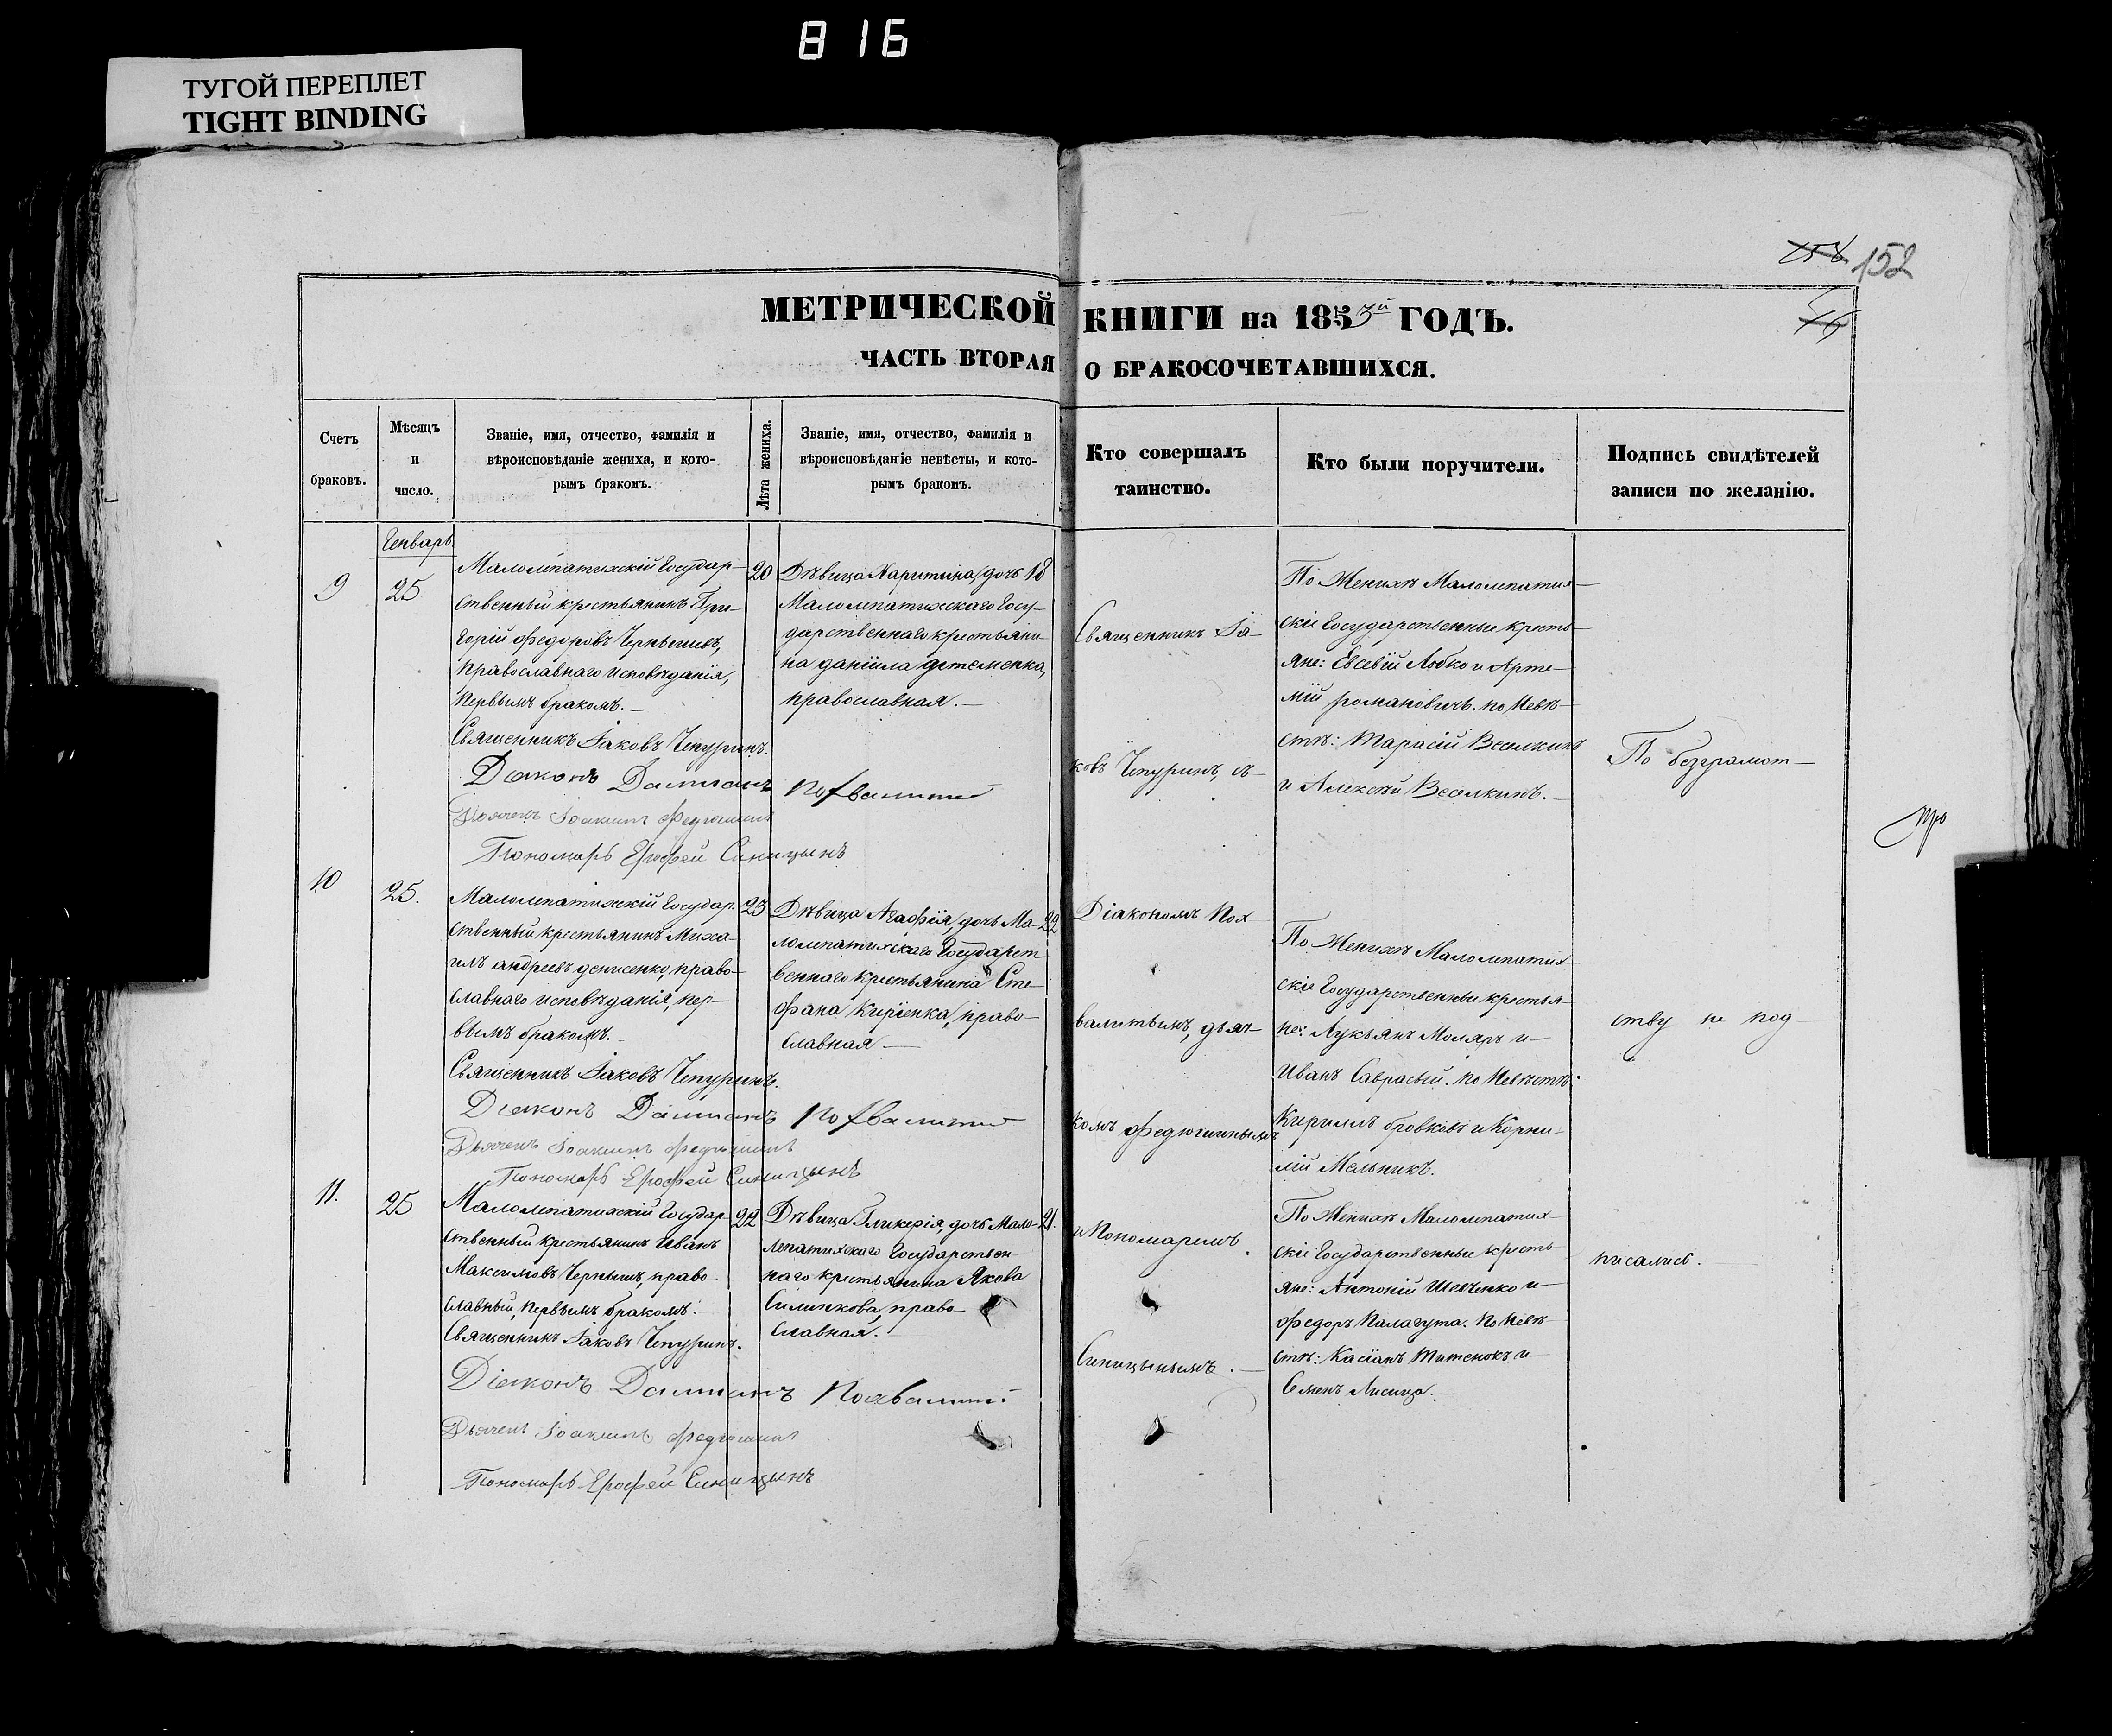 816
ТУГОЙ ПЕРЕПЛЕТ
TIGHT BINDING
152
МЕТРИЧЕСКОЙ КНИГИ на 1853й ГОДЪ.
ЧАСТЬ ВТОРАЯ О БРАКОСОЧЕТАВШИХСЯ.
Счетъ браковъ.
Мѣсяцъ и число.
Званіе, имя, отчество, фамилія и
вѣроисповѣданіе жениха, и кото-
рымъ бракомъ.
Лѣта жениха.
Званіе, имя, отчество, фамилія и
вѣроисповѣданіе невѣсты, и кото-
рымъ бракомъ.
Кто совершалъ
таинство.
Кто были поручители.
Подпись свидѣтелей
записи по желанію.
Генварь
9
25
Малолепатихскій Государ-
ственный крестьянинъ Гри-
горій Федоровъ Чернышевъ,
православнаго исповѣданія,
первымъ бракомъ.-
Священникъ Іаковъ Чепуринъ.
Діаконъ Даміанъ Похвалитый
Дьячекъ Іоакимъ Федюшинъ
Пономарь Ерофей Синицынъ
20
Дѣвица Харитина, дочь 18
Малолепатихскаго Госу-
дарственнаго крестьяни-
на даніила артеменка,
православная.-
По Женихѣ Малолепатих-
скіе Государственные кресть-
яне: Евсевій Лобко и Арте-
мій романовичь. по Невѣ-
стѣ: Тарасій Веселкинъ
и Алексѣй Веселкинъ.-
10
25.
Малолепатихскій Государ-
ственный крестьянинъ Миха-
илъ андреевъ денисенко, право-
славнаго исповѣданія, пер-
вымъ бракомъ.-
Священникъ Іаковъ Чепуринъ.
Діаконъ Даміанъ Похвалитый
Дьячекъ Іоакимъ Федюшинъ
Пономарь Ерофей Синицынъ
23
Дѣвица Агафія, дочь Ма- 22
лолепатихскаго Государст
веннаго крестьянина Сте-
фана Киріенка, право-
славная -
По Женихѣ Малолепатих-
скіе Государственные крестья-
не: Лукьянъ Моляръ и
Иванъ Саврасый. по Невѣстѣ:
Кириллъ бровковъ и Корни-
лій Мельникъ.
11.
25
Малолепатихскій Государ-
ственный крестьянинъ Иванъ
Максимовъ Чернышъ, право-
славный, первымъ бракомъ.
Священникъ Іаковъ Чепуринъ.
Діаконъ Даміанъ Похвалитый
Дьячекъ Іоакимъ Федюшинъ
Пономарь Ерофей Синицынъ
22
Дѣвица Гликерія, дочь Мало- 21.
лепатихскаго Государствен-
наго крестьянина Якова
Силинкова, право-
славная.-
По Женихѣ Малолепатих-
скіе Государственные кресть
яне: Антоній Шевченко и
Федоръ Палагута. По Невѣ-
стѣ: Касіанъ Титенокъ и
Семенъ Лисица.-
Священникъ Іа-
ковъ Чепуринъ, съ
Діакономъ Пох
валитымъ, дьяч-
комъ Федюшинымъ
и Пономаремъ
Синицынымъ.-
По безграмот-
ству не под-
писались.-
про